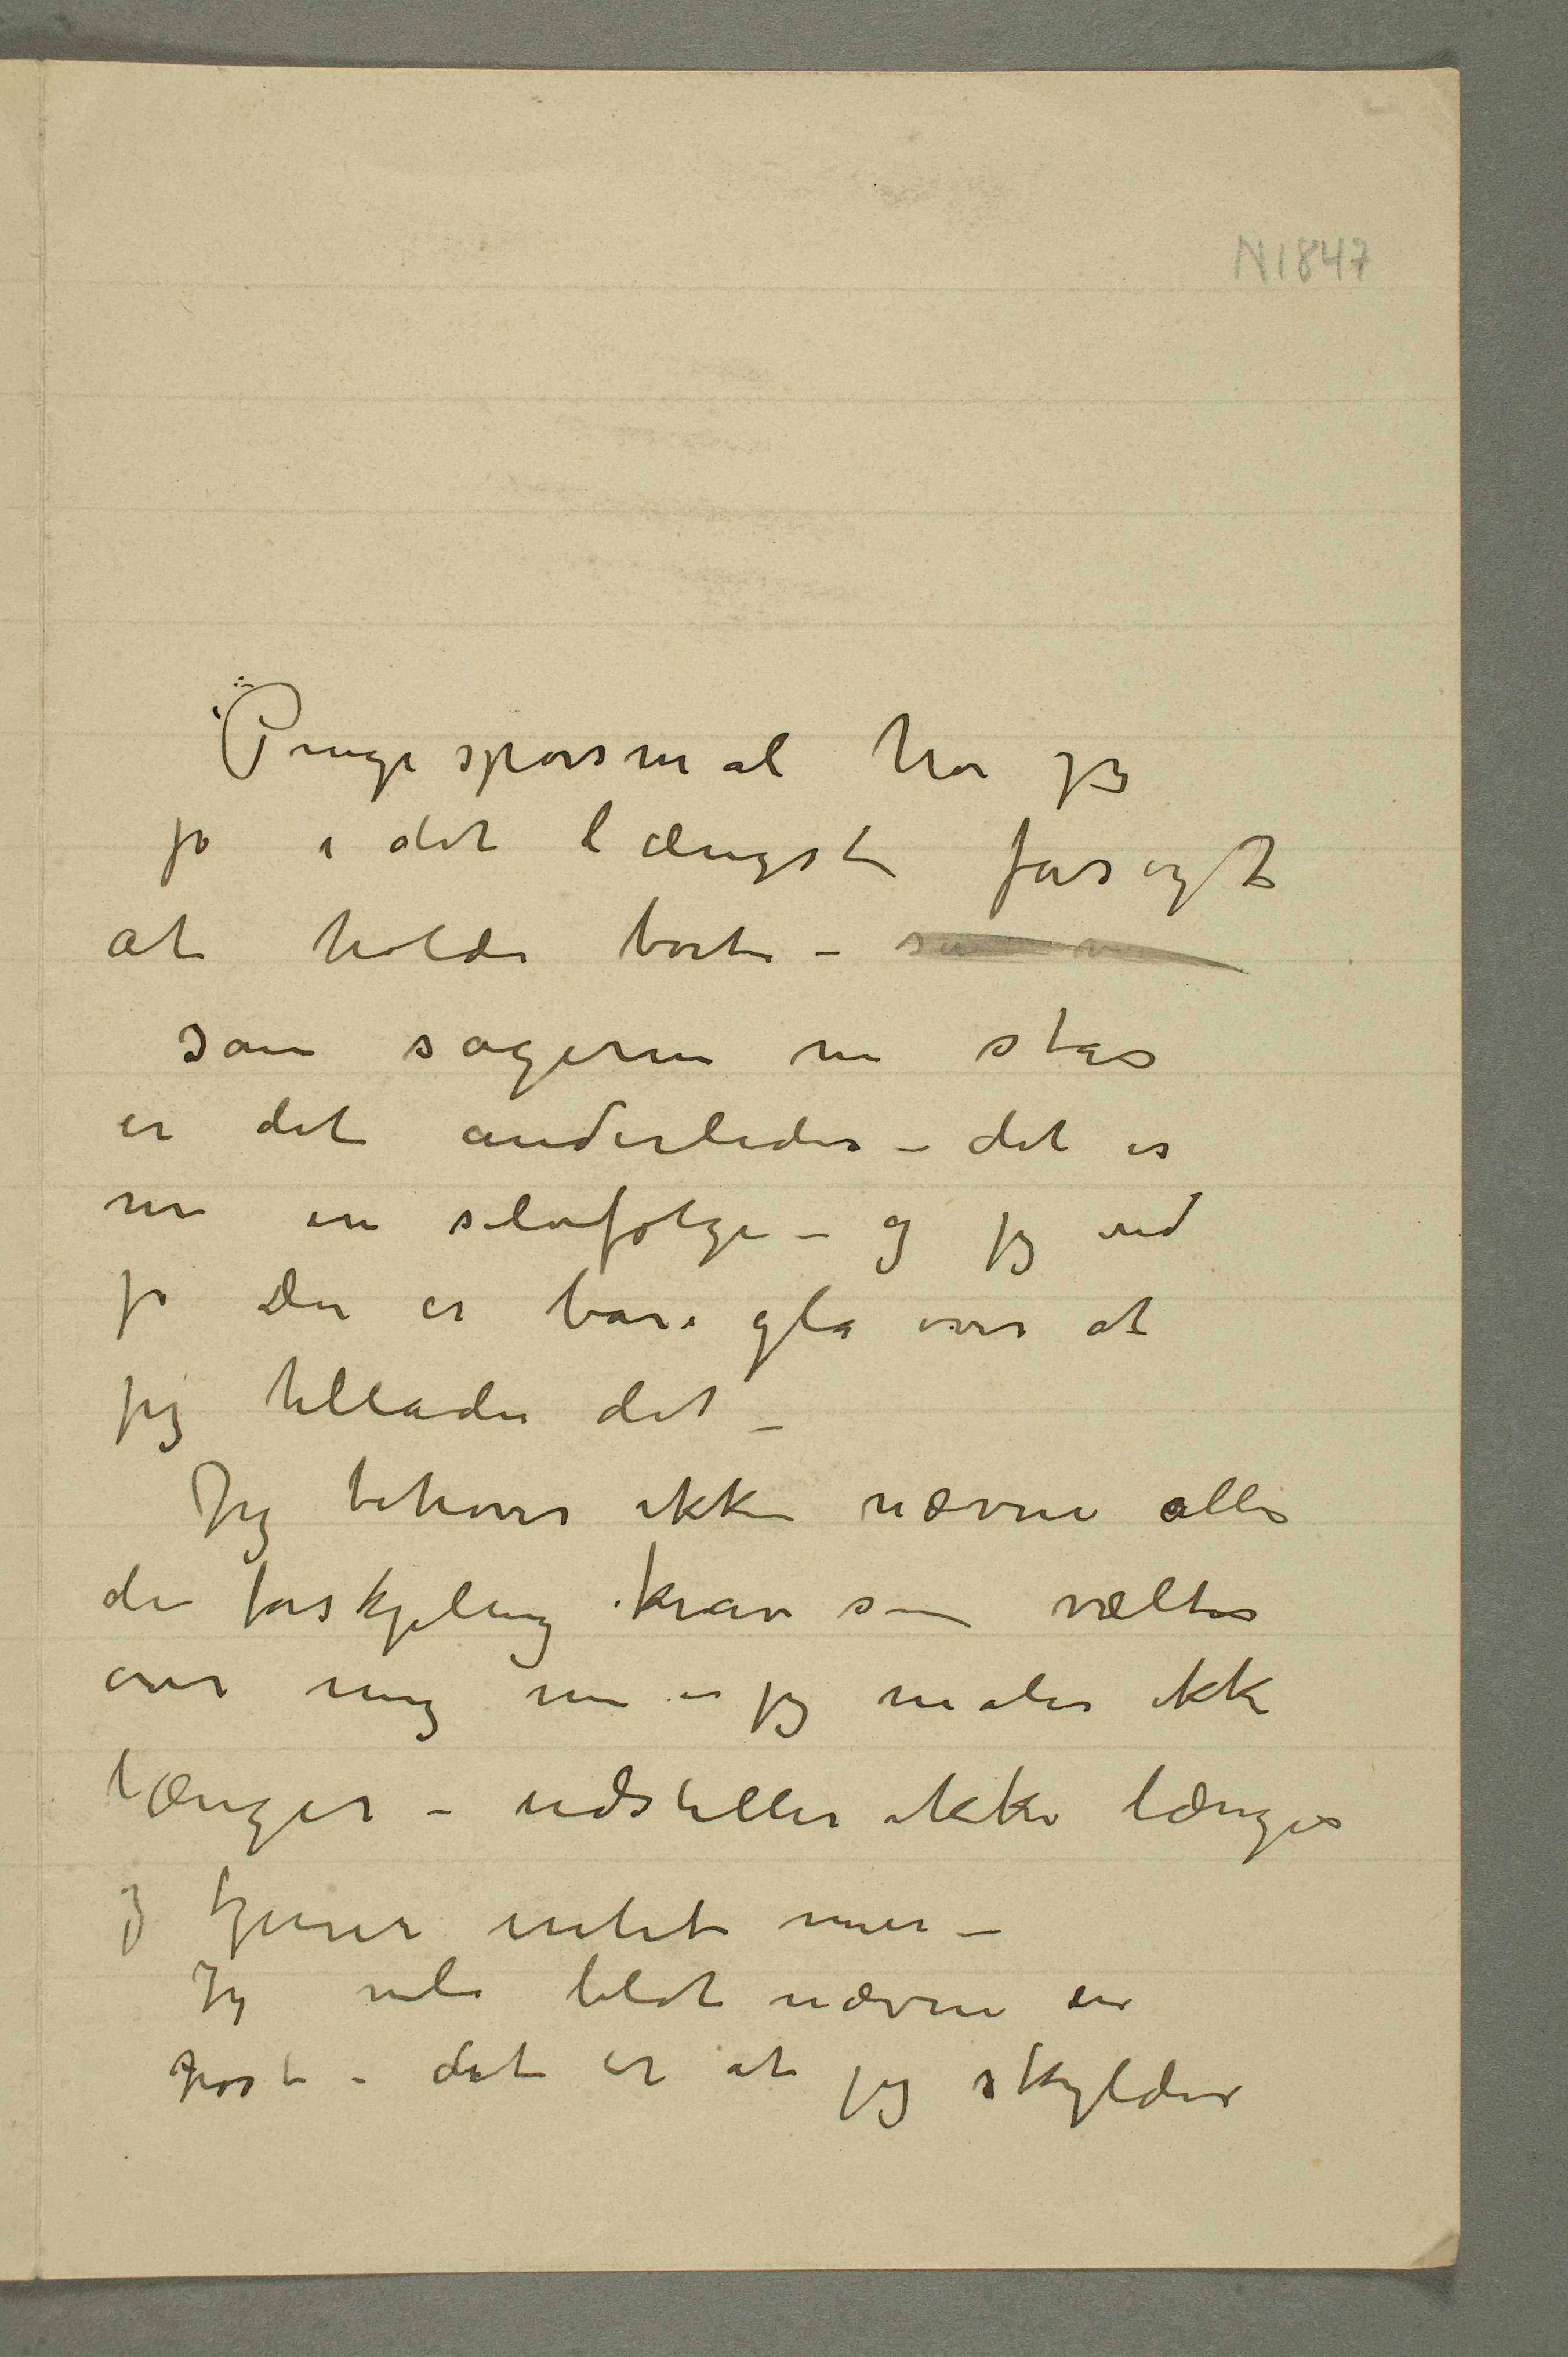 N1847
Pengespørsmål har jeg
jo i det længste forsøgt
at holde borte –
som sagerne nu står
er det anderledes – det er
nu en selvfølge – og jeg ved
jo Du er bare gla over at
jeg tillader det –
Jeg behøver ikke nævne alle
de forskjellig krav som væltes
over mig nu – jeg maler ikke
længer – udstiller ikke længer
og tjener intet mer –
Jeg vil blot nævne en
post – det er at jeg skylder